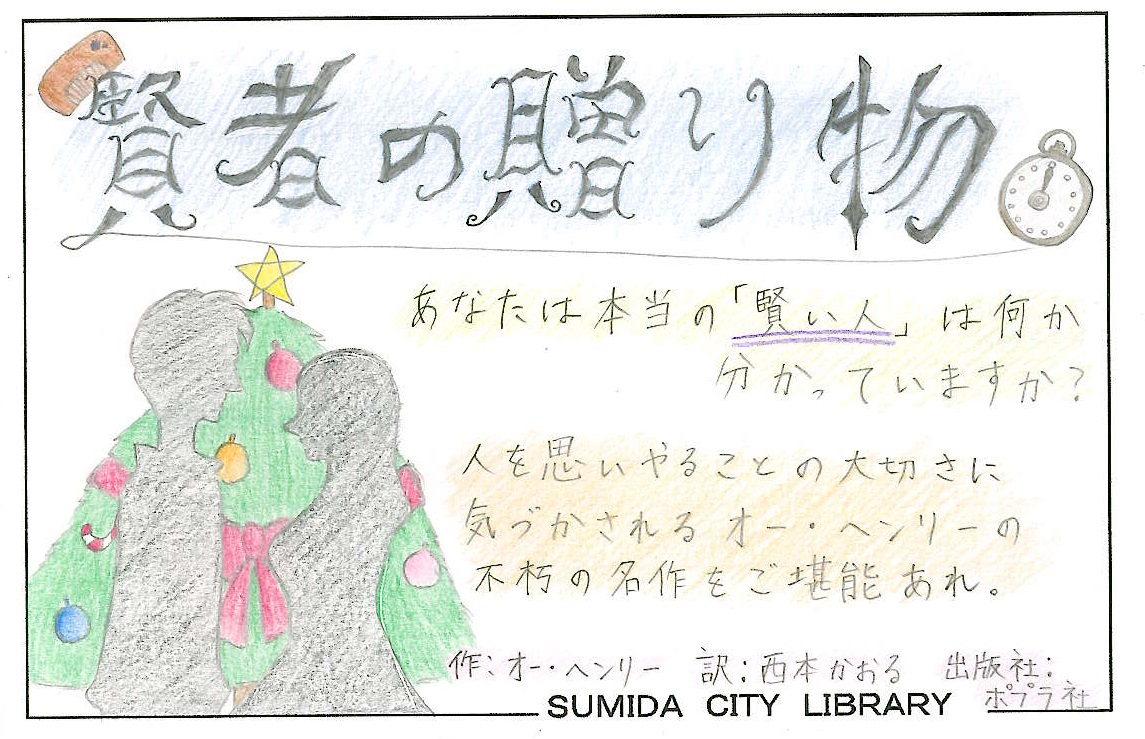 賢者の贈り物
あなたは本当の「賢い人」は何か
分かっていますか?
人を思いやることの大切さに
気づかされるオー・ヘンリーの
不朽の名作をご堪能あれ。
作:オー・ヘンリー 訳:西本かおる 出版社:
ポプラ社
SUMIDA CITY LIBRARY